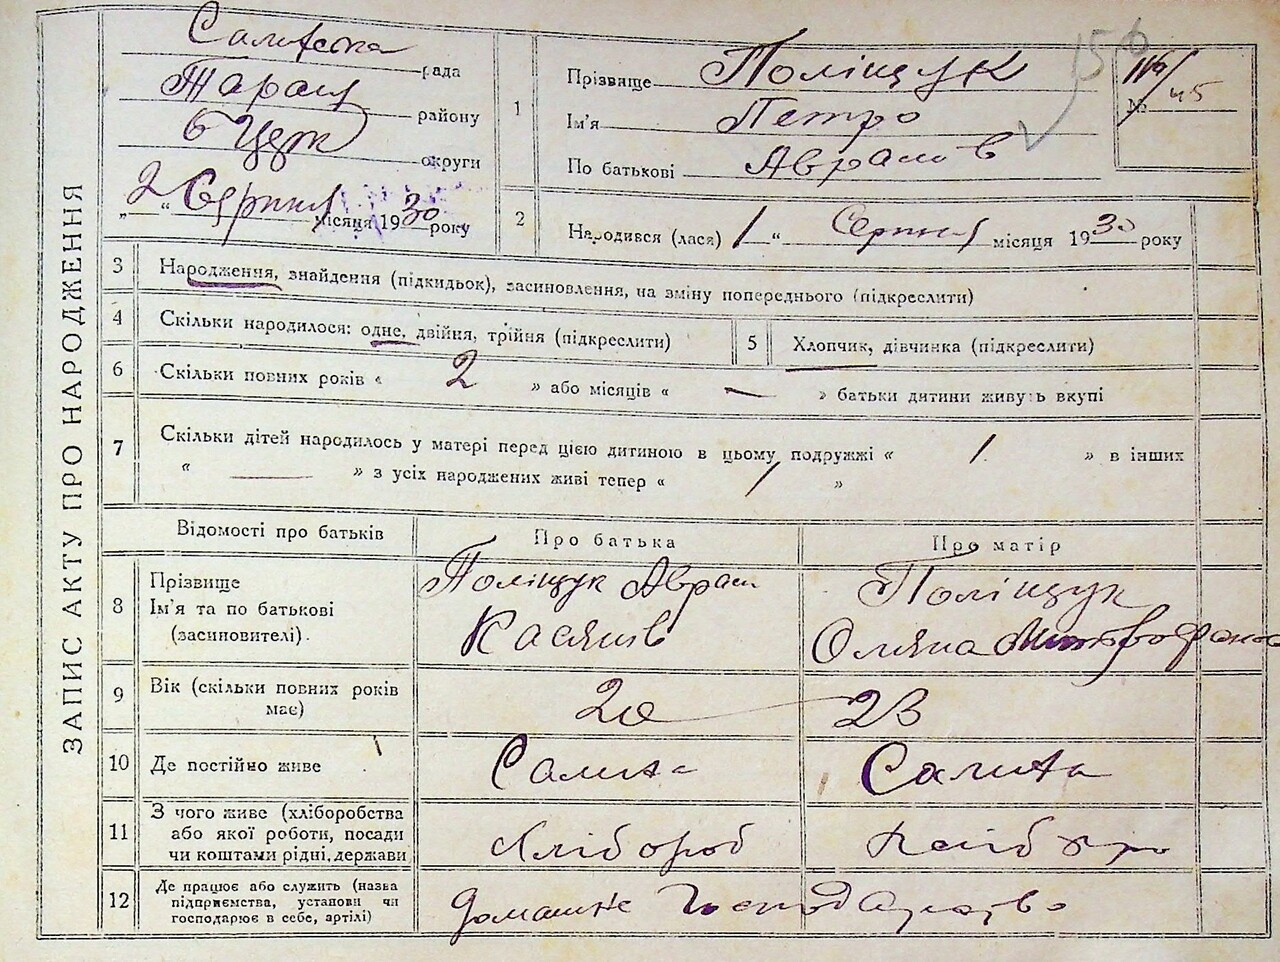 ЗАПИС АКТУ ПРО НАРОДЖЕННЯ
рада
Таращ району
Б Церк округи
„2“ Серпня місяця 1930 року
1 Прізвище Поліщук
Ім'я Петро
По батькові Аврамов
№ 116/45
156
2 Народився (лася) 1 “ Серпня місяця 1930 року
3 Народження, знайдення (підкидьок), засиновлення, на зміну попереднього (підкреслити)
4 Скільки народилося: одне, двійня, трійня (підкреслити)
5 Хлопчик, дівчинка (підкреслити)
6 Скільки повних років « 2 » або місяців « — » батьки дитини живуть вкупі
7 Скільки дітей народилось у матері перед цією дитиною в цьому подружжі « 1 » в інших
« — » з усіх народжених живі тепер « 1 »
Відомості про батьків
Про батька
Про матір
8 Прізвище
Ім'я та по батькові
(засиновителі).
Поліщук Аврам
Касянів
Поліщук
Оляна Митрофанов
9 Вік (скільки повних років
має)
20
23
10 Де постійно живе
Салиха
Салиха
11 З чого живе (хліборобства
або якої роботи, посади
чи коштами рідні, держави
Хлібороб
12 Де працює або служить (назва
підприємства, установи чи
господарює в себе, артілі)
Домашнє Господарство